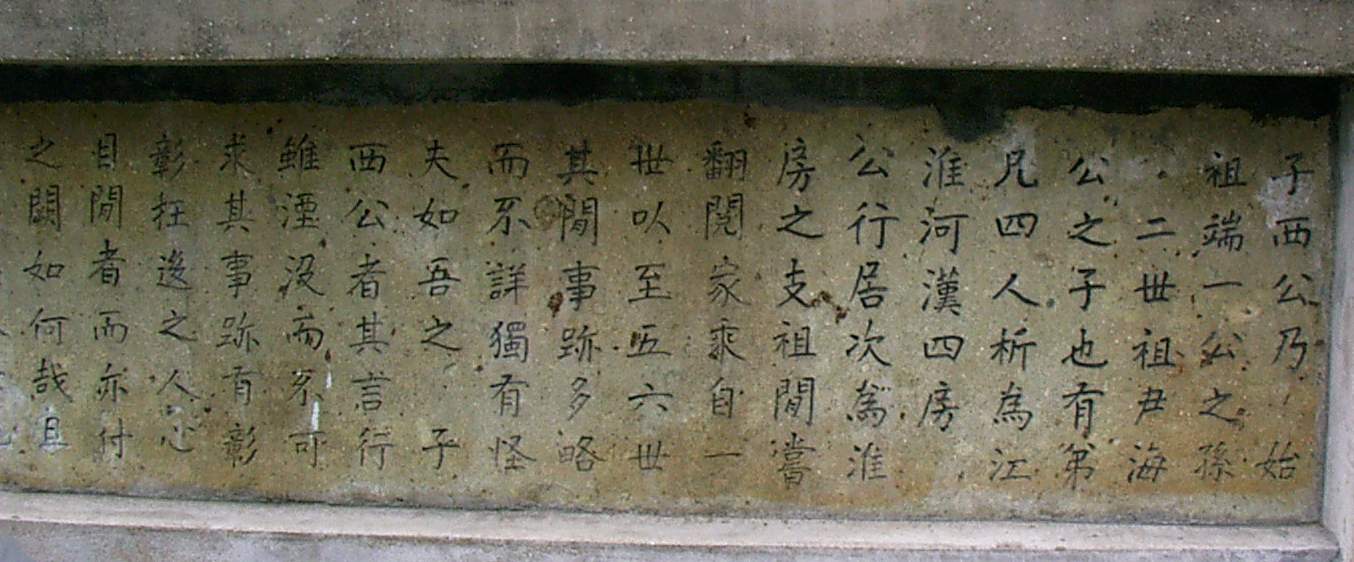 子西公乃 始
祖端一公之孫
二世祖尹海
公之子也有第
兄四人析為江
淮河漢四房
公行居次爲淮
房之支祖閒嘗
翻閱家乘自一
世以至五六世
其閒事跡多略
而不詳獨有怪
夫如吾之 子
西公者其言行
雖湮沒而不可
求其事跡有彰
彰在逸之人心
目閒者而亦付
之闕如何哉且